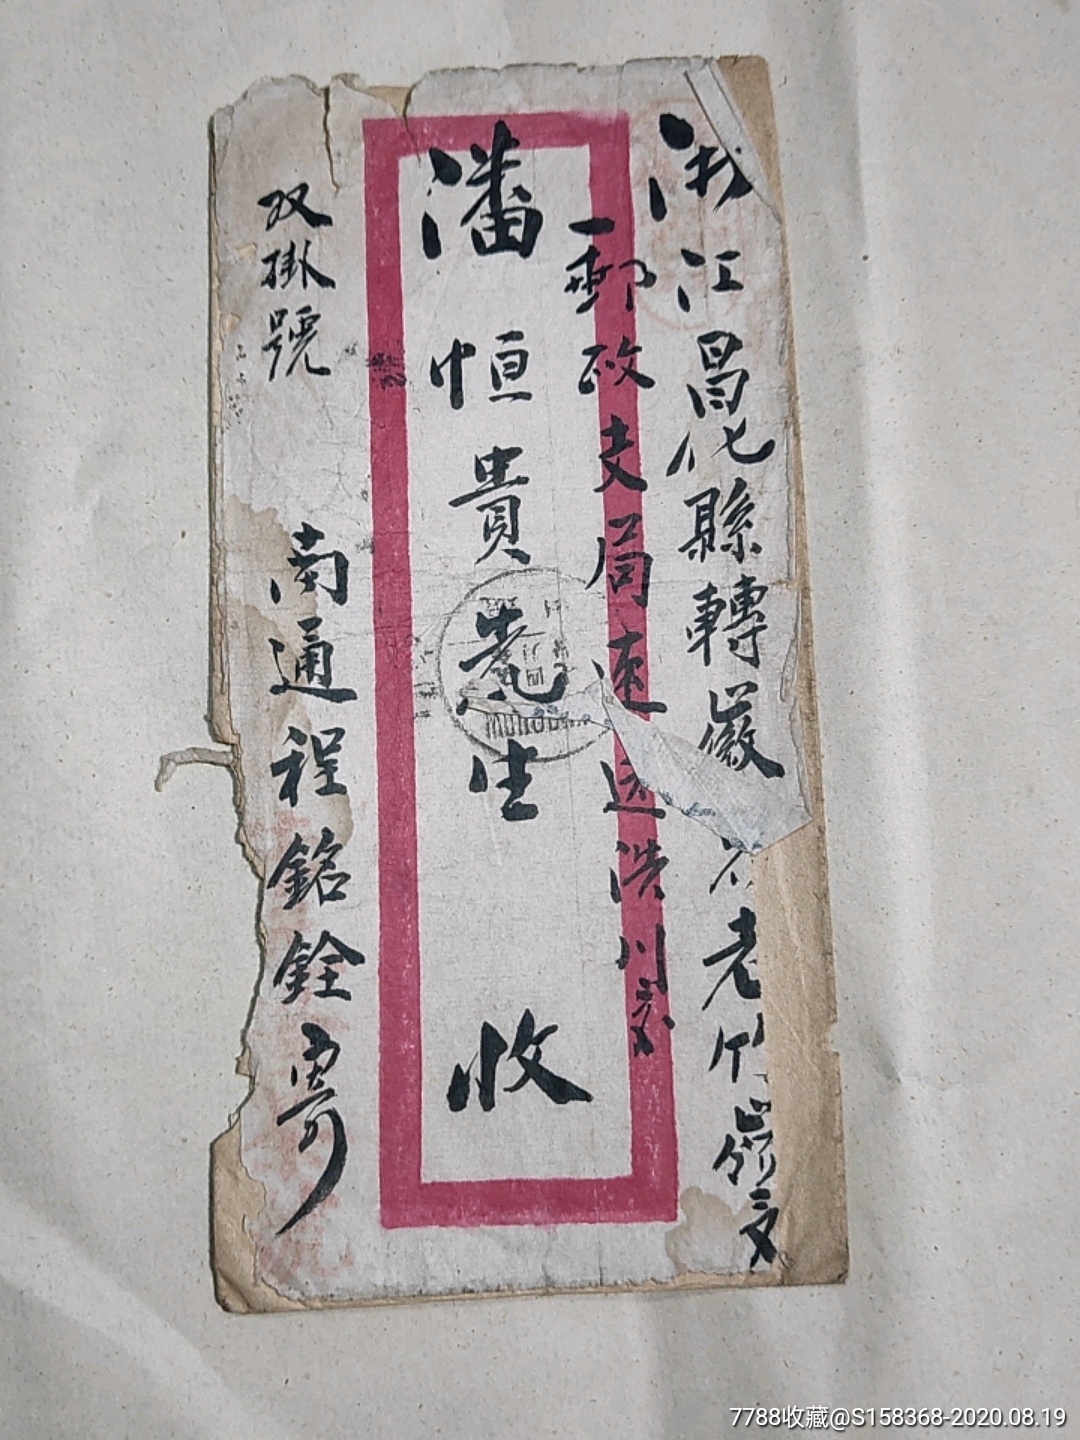 浙江昌化縣轉徽 老竹嶺交
郵政支局速送洪川交
潘恒貴先生 收
双掛號
南通程銘銓寄
7788收藏@S158368-2020.08.19